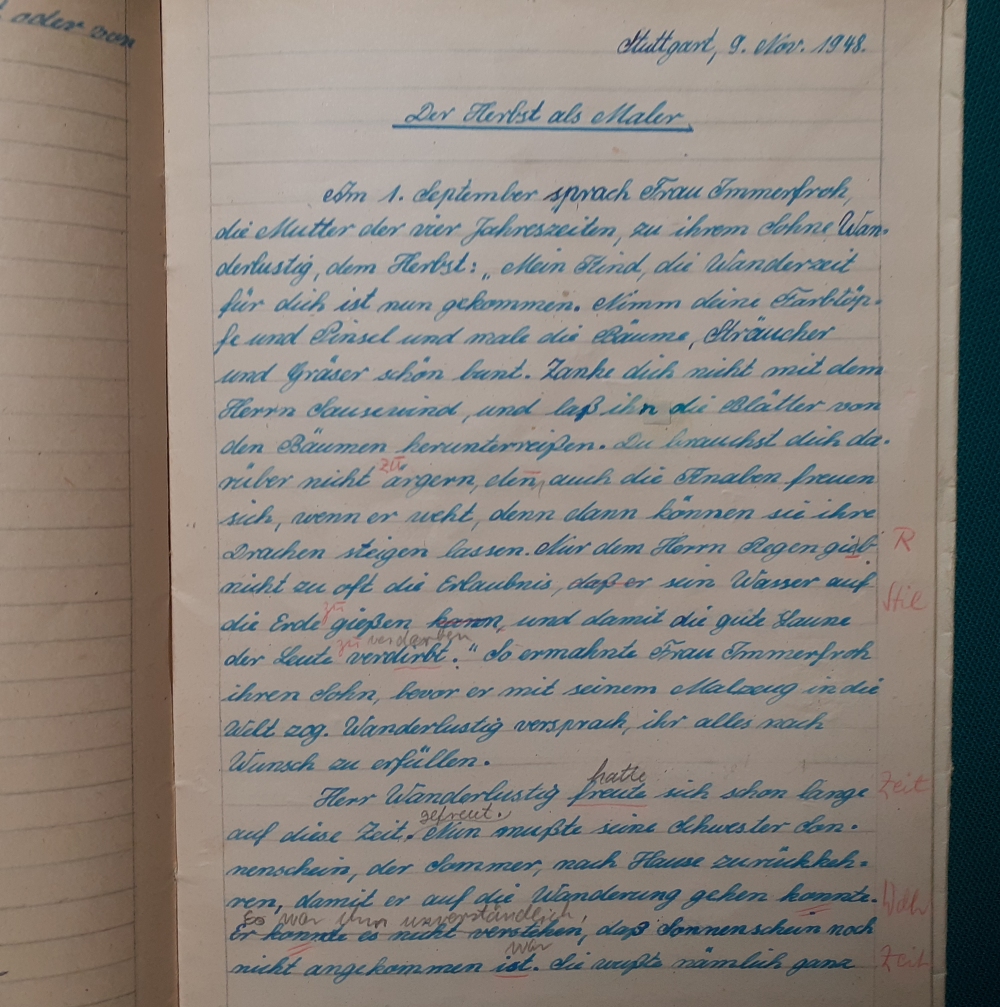 oder von
Stuttgart, 9. Nov. 1948.
Der Herbst als Maler.
Am 1. September sprach Frau Immerfroh,
die Mutter der vier Jahreszeiten, zu ihrem Sohne Wan-
derlustig, dem Herbst: „Mein Kind, die Wanderzeit
für dich ist nun gekommen. Nimm deine Farbtöp-
fe und Pinsel und male die Bäume, Sträucher
und Gräser schön bunt. Zanke dich nicht mit dem
Herrn Sausewind, und laß ihn die Blätter von
den Bäumen herunterreißen. Du brauchst dich da-
zu
rüber nicht ärgern, den̄, auch die Knaben freuen
sich, wenn er weht, denn dann können sie ihre
Drachen steigen lassen. Nur dem Herrn Regen gieb R
nicht zu oft die Erlaubnis, daß er sein Wasser auf
zu Stil
die Erde gießen kann, und damit die gute Laune
zu verderben
der Leute verdirbt." So ermahnte Frau Immerfroh
ihren Sohn, bevor er mit seinem Malzeug in die
Welt zog. Wanderlustig versprach, ihr alles nach
Wunsch zu erfüllen.
hatte
Herr Wanderlustig freute sich schon lange Zeit
gefreut.
auf diese Zeit. Nun mußte seine Schwester Son-
nenschein, der Sommer, nach Hause zurückkeh-
ren, damit er auf die Wanderung gehen konnte. Wdh
Es war ihm unverständlich,
Er konnte es nicht verstehen, daß Sonnenschein noch
war
nicht angekommen ist. Sie wußte nämlich ganz Zeit